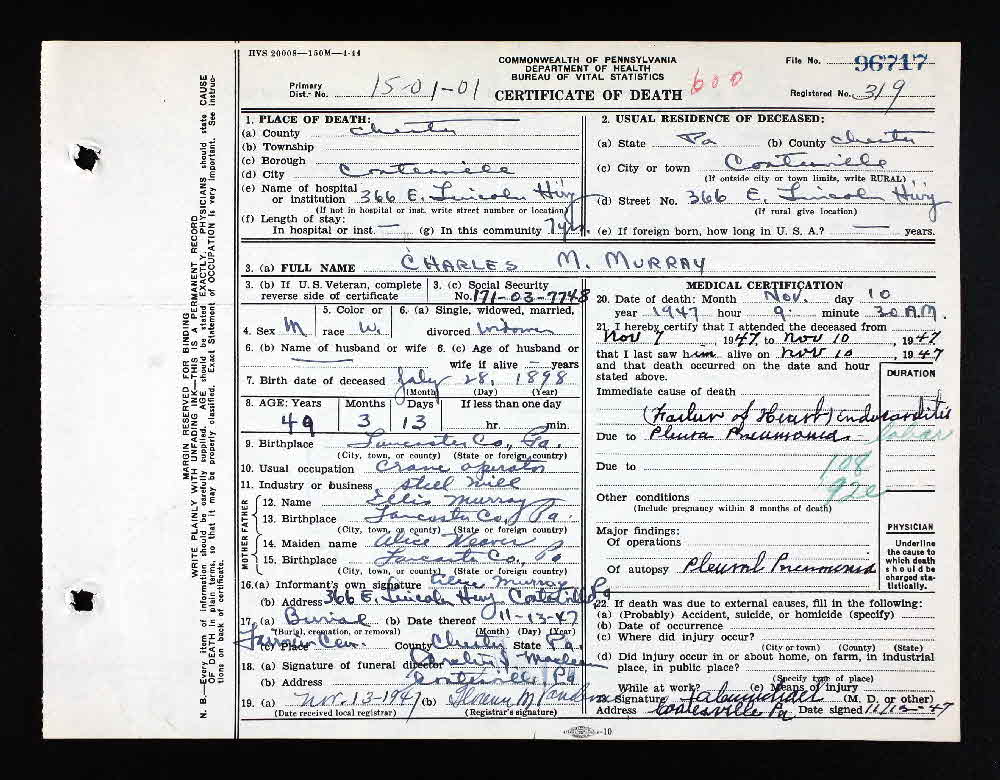 HVS 20008—150M—4-44
COMMONWEALTH OF PENNSYLVANIA
DEPARTMENT OF HEALTH
BUREAU OF VITAL STATISTICS
CERTIFICATE OF DEATH
600
File No. 96717
Primary Dist. No. 15-01-01
Registered No. 319
MARGIN RESERVED FOR BINDING
WRITE PLAINLY WITH UNFADING INK—THIS IS A PERMANENT RECORD
N. B.—Every item of information should be carefully supplied. AGE should be stated EXACTLY. PHYSICIANS should state CAUSE
OF DEATH in plain terms, so that it may be properly classified. Exact Statement of OCCUPATION is very important. See instruc-
tions on back of certificate.
1. PLACE OF DEATH:
(a) County Chester
(b) Township
(c) Borough
(d) City Coatesville
(e) Name of hospital or institution 366 E. Lincoln Hwy
(If not in hospital or inst. write street number or location)
(f) Length of stay:
In hospital or inst. — (g) In this community 7 yrs.
2. USUAL RESIDENCE OF DECEASED:
(a) State Pa (b) County Chester
(c) City or town Coatesville
(If outside city or town limits, write RURAL)
(d) Street No. 366 E. Lincoln Hwy
(If rural give location)
(e) If foreign born, how long in U. S. A.? — years.
3. (a) FULL NAME CHARLES M. MURRAY
3. (b) If U. S. Veteran, complete reverse side of certificate
3. (c) Social Security No. 171-03-7748
4. Sex M
5. Color or race W.
6. (a) Single, widowed, married, divorced Widower
6. (b) Name of husband or wife
6. (c) Age of husband or wife if alive years
7. Birth date of deceased July 28, 1898
(Month) (Day) (Year)
8. AGE: Years Months Days If less than one day
49 3 13 hr. min.
9. Birthplace Lancaster Co., Pa.
(City, town, or county) (State or foreign country)
10. Usual occupation Crane operator
11. Industry or business Steel Mill
FATHER
12. Name Ellis Murray
13. Birthplace Lancaster Co., Pa.
(City, town, or county) (State or foreign country)
MOTHER
14. Maiden name Alice Weaver
15. Birthplace Lancaster Co., Pa
(City, town, or county) (State or foreign country)
16. (a) Informant's own signature Murray
(b) Address 366 E. Lincoln Hwy, Coatesville Pa
17. (a) Burial (b) Date thereof 11-13-47
(Burial, cremation, or removal) (Month) (Day) (Year)
(c) Place Cem. County Chester State Pa.
18. (a) Signature of funeral director
(b) Address Coatesville, Pa
19. (a) Nov. 13-1947 (b)
(Date received local registrar) (Registrar's signature)
MEDICAL CERTIFICATION
20. Date of death: Month Nov. day 10
year 1947 hour 9 minute 30 A.M.
21. I hereby certify that I attended the deceased from
Nov 7, 1947 to Nov 10, 1947
that I last saw him alive on Nov 10, 1947
and that death occurred on the date and hour
stated above.
DURATION
Immediate cause of death
(Failure of Heart) Endocarditis
Due to Pleura Pneumonia. lobar
Due to
108
92e
Other conditions
(Include pregnancy within 3 months of death)
Major findings:
Of operations
Of autopsy Pleural Pneumonia
PHYSICIAN
Underline the cause to which death should be charged statistically.
22. If death was due to external causes, fill in the following:
(a) (Probably) Accident, suicide, or homicide (specify)
(b) Date of occurrence
(c) Where did injury occur?
(City or town) (County) (State)
(d) Did injury occur in or about home, on farm, in industrial
place, in public place?
(Specify type of place)
While at work? (e) Means of injury
23. Signature (M. D. or other)
Address Coatesville Pa Date signed 11/12-47
10